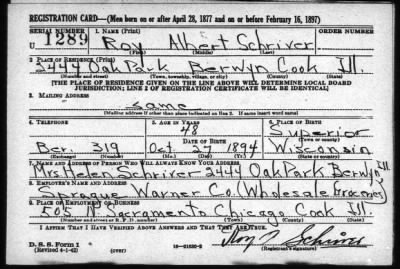 REGISTRATION CARD—(Men born on or after April 28, 1877 and on or before February 16, 1897)
SERIAL NUMBER 1. NAME (Print) ORDER NUMBER
U 1289 Roy Albert Schriver
(First) (Middle) (Last)
2. PLACE OF RESIDENCE (Print)
2444 Oak Park Berwyn Cook Ill.
(Number and street) (Town, township, village, or city) (County) (State)
[THE PLACE OF RESIDENCE GIVEN ON THE LINE ABOVE WILL DETERMINE LOCAL BOARD
JURISDICTION; LINE 2 OF REGISTRATION CERTIFICATE WILL BE IDENTICAL]
3. MAILING ADDRESS
same
[Mailing address if other than place indicated on line 2. If same insert word same]
4. TELEPHONE 5. AGE IN YEARS 6. PLACE OF BIRTH
48 Superior
DATE OF BIRTH (Town or county)
Ber. 319 Oct 27 1894 Wisconsin
(Exchange) (Number) (Mo.) (Day) (Yr.) (State or country)
7. NAME AND ADDRESS OF PERSON WHO WILL ALWAYS KNOW YOUR ADDRESS
Mrs Helen Schriver 2444 Oak Park Berwyn Ill
8. EMPLOYER'S NAME AND ADDRESS
Sprague Warner Co. (Wholesale Groceries)
9. PLACE OF EMPLOYMENT OR BUSINESS
505 N Sacramento Chicago Cook Ill.
(Number and street or R. F. D. number) (Town) (County) (State)
I AFFIRM THAT I HAVE VERIFIED ABOVE ANSWERS AND THAT THEY ARE TRUE.
D. S. S. Form 1
(Revised 4-1-42) (over) 16—21630-2 (Registrant's signature)